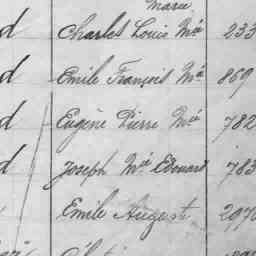 Marie
d Charles Louis Mie 233
d Emile François Mie 869
d Eugène Pierre Mie 782
d Joseph Mie Edouard 783
Emile August 297